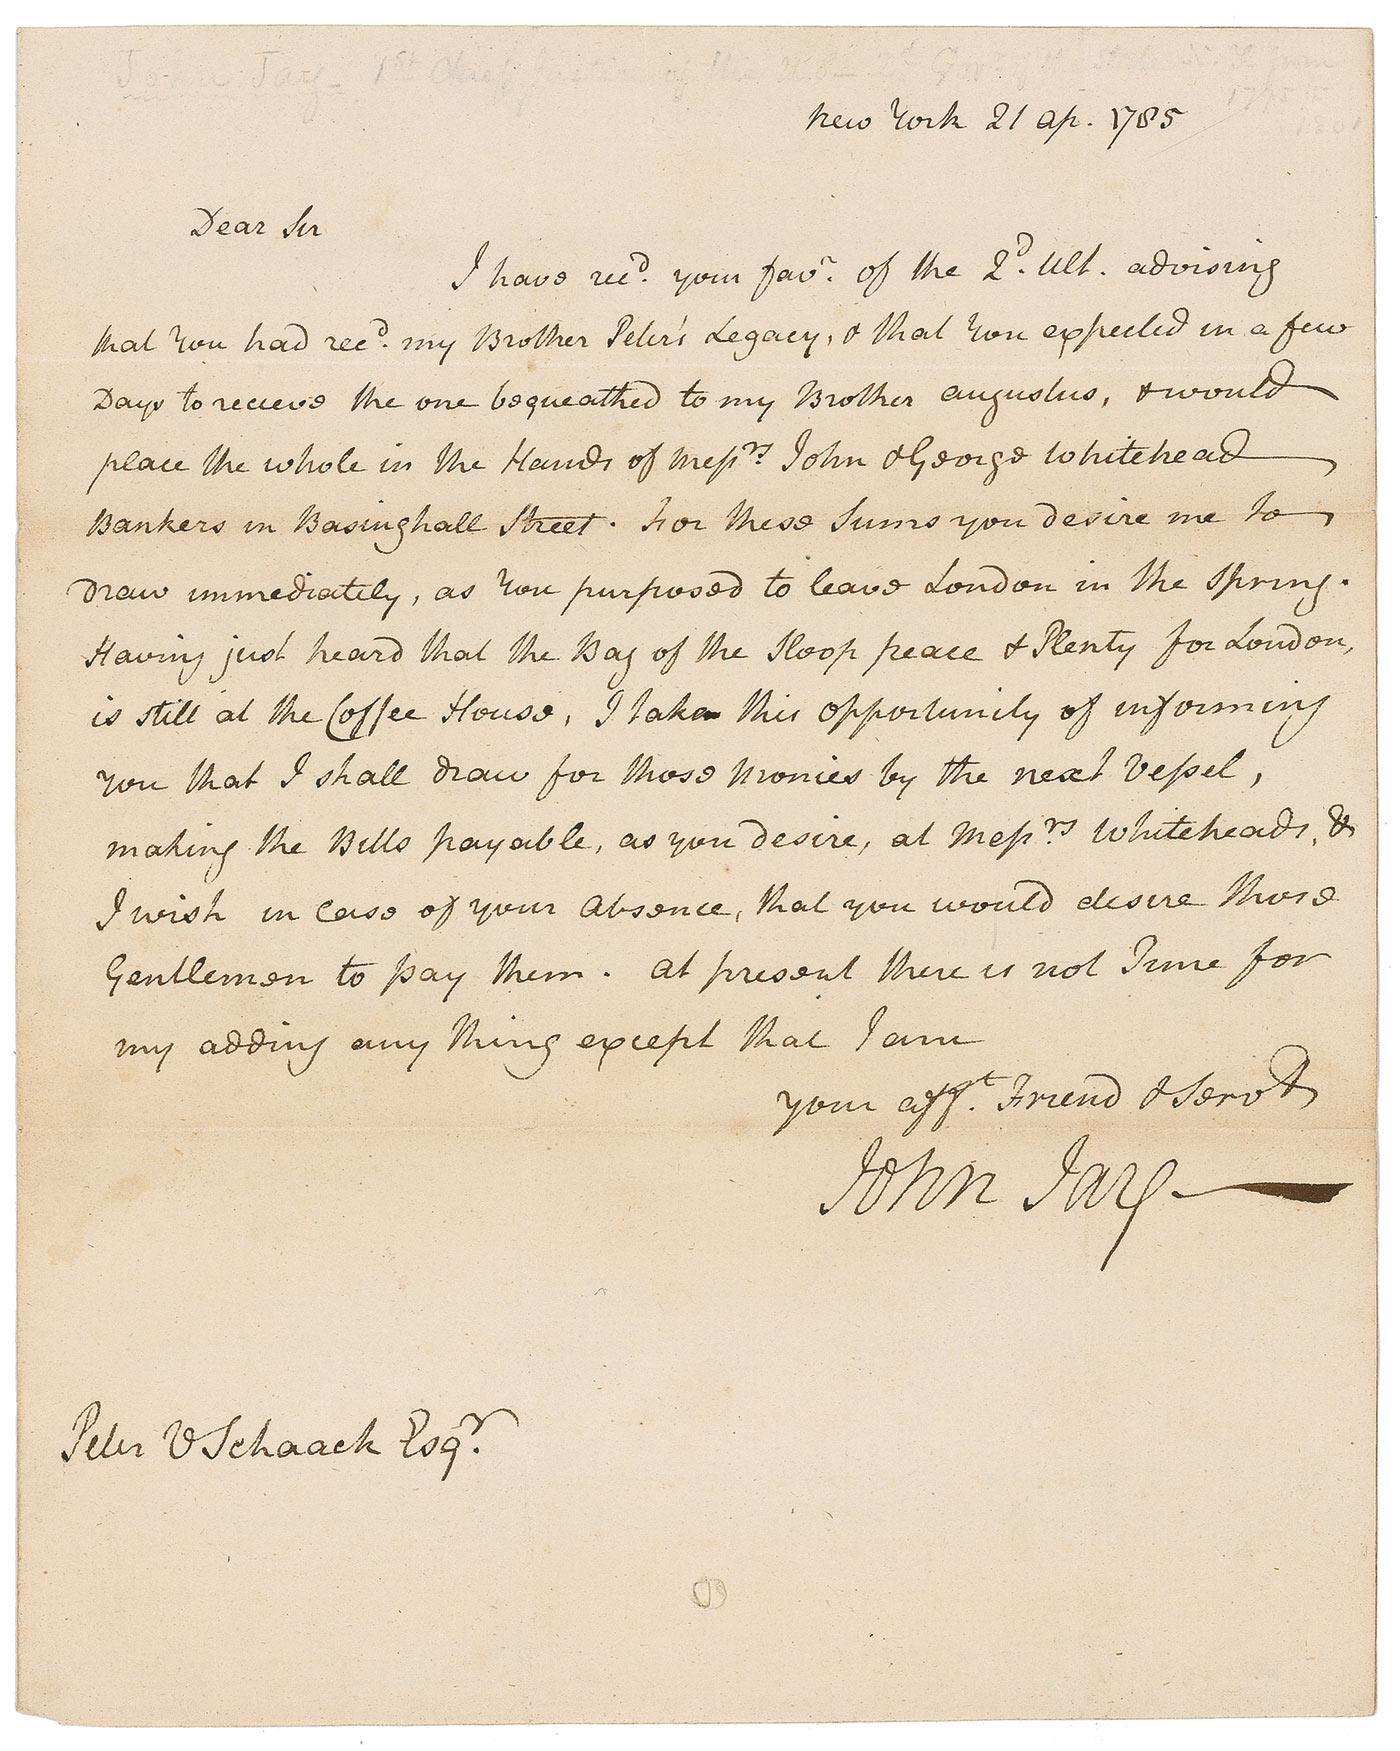 John Jay - 1st Chief Justice of the U.S. - 2d Gov. of the State N.Y. from
1795 to
1801
New York 21 Ap. 1785
Dear Sir
I have recd. your favr. of the 2d. Ult. advising
that You had recd. my Brother Peter's Legacy, & that You expected in a few
Days to recieve the one bequeathed to my Brother Augustus, & would
place the whole in the Hands of Messrs. John & George Whitehead
Bankers in Basinghall Street. For these Sums you desire me to
Draw immediately, as You purposed to leave London in the Spring.
Having just heard that the Bag of the Sloop peace & Plenty for London,
is still at the Coffee House, I take this opportunity of informing
you that I shall draw for those Monies by the next Vessel,
making the Bills payable, as you desire, at Messrs. Whiteheads, &
I wish in Case of your Absence, that you would desire those
Gentlemen to pay them. At present there is not Time for
my adding any thing except that I am
your afft. Friend & Servt
John Jay
Peter V Schaack Esqr.